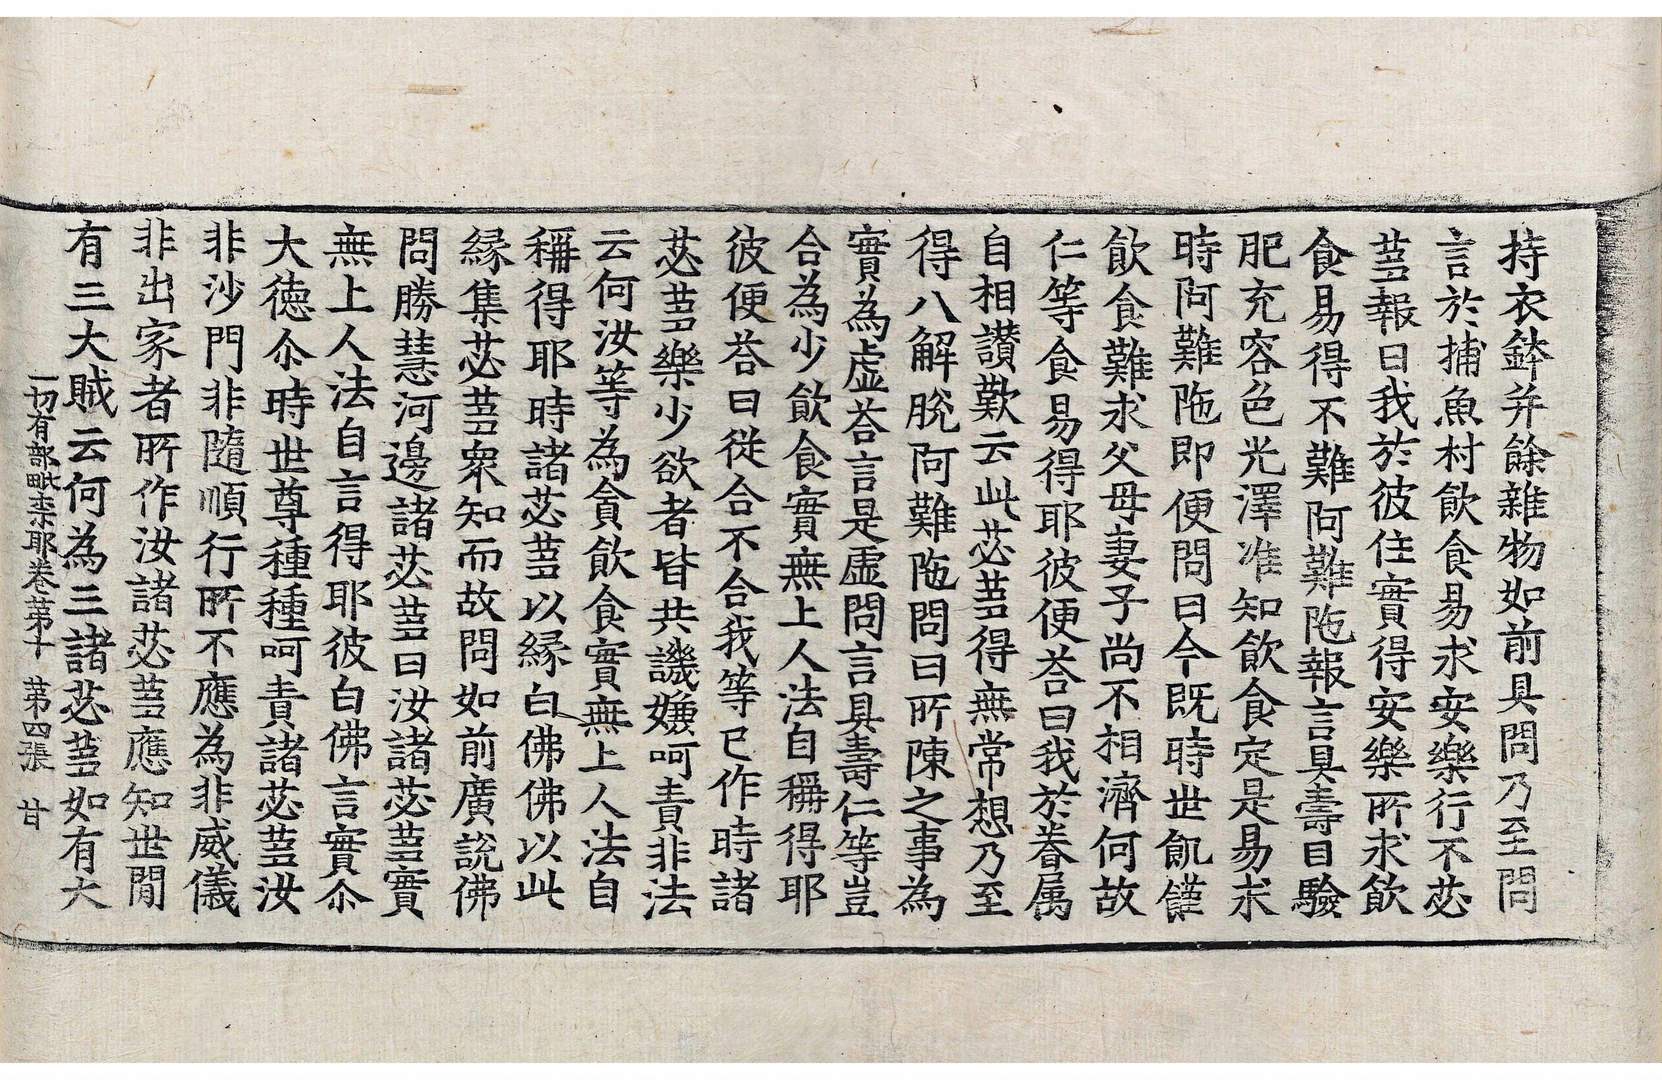 持衣鉢并餘雜物如前具問乃至問
言於捕魚村飲食易求安樂行不苾
蒭報曰我於彼住實得安樂所求飲
食易得不難阿難陁報言具壽目驗
肥充容色光澤准知飲食定是易求
時阿難陁即便問曰今既時世飢饉
飲食難求父母妻子尚不相濟何故
仁等食易得耶彼便荅曰我於眷属
自相讃歎云此苾蒭得無常想乃至
得八解脫阿難陁問曰所陳之事為
實為虛荅言是虛問言具壽仁等豈
合為少飲食實無上人法自稱得耶
彼便荅曰從合不合我等已作時諸
苾蒭樂少欲者皆共譏嫌呵責非法
云何汝等為貪飲食實無上人法自
稱得耶時諸苾蒭以縁白佛佛以此
縁集苾蒭衆知而故問如前廣說佛
問勝慧河邊諸苾蒭曰汝諸苾蒭實
無上人法自言得耶彼白佛言實尒
大徳尒時世尊種種呵責諸苾蒭汝
非沙門非隨順行所不應為非威儀
非出家者所作汝諸苾蒭應知世間
有三大賊云何為三諸苾蒭如有大
一切有部毗柰耶卷第十 第四張 甘